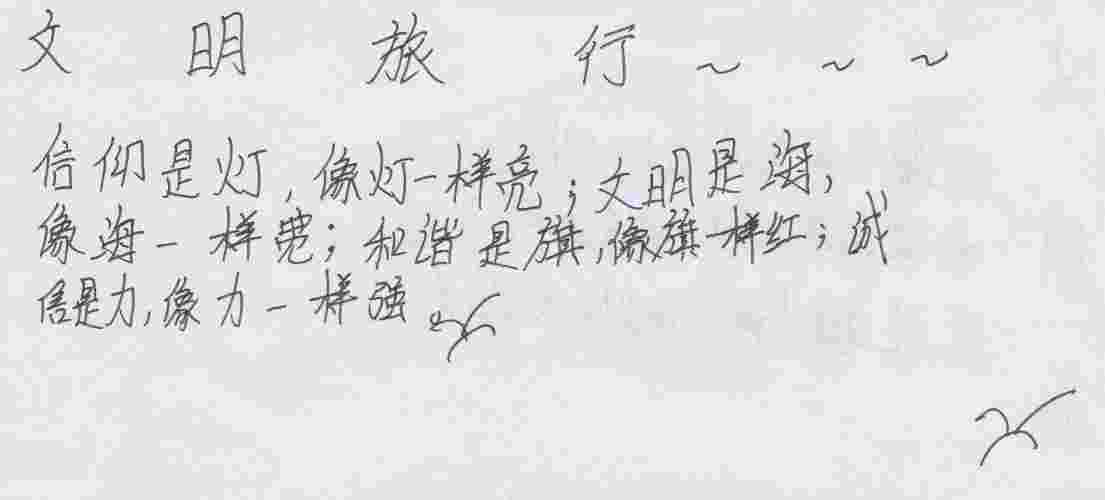 文明旅行~~~
信仰是灯,像灯一样亮;文明是海,
像海一样宽;和谐是旗,像旗一样红;诚
信是力,像力一样强